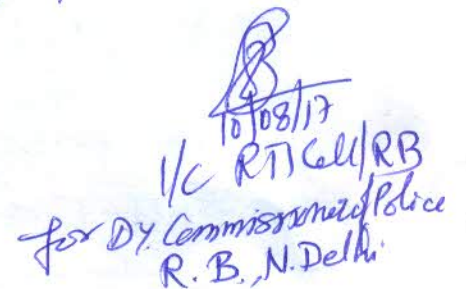 10/08/17
I/C RTI Cell/RB
for DY. Commissioner of Police
R. B., N. Delhi.